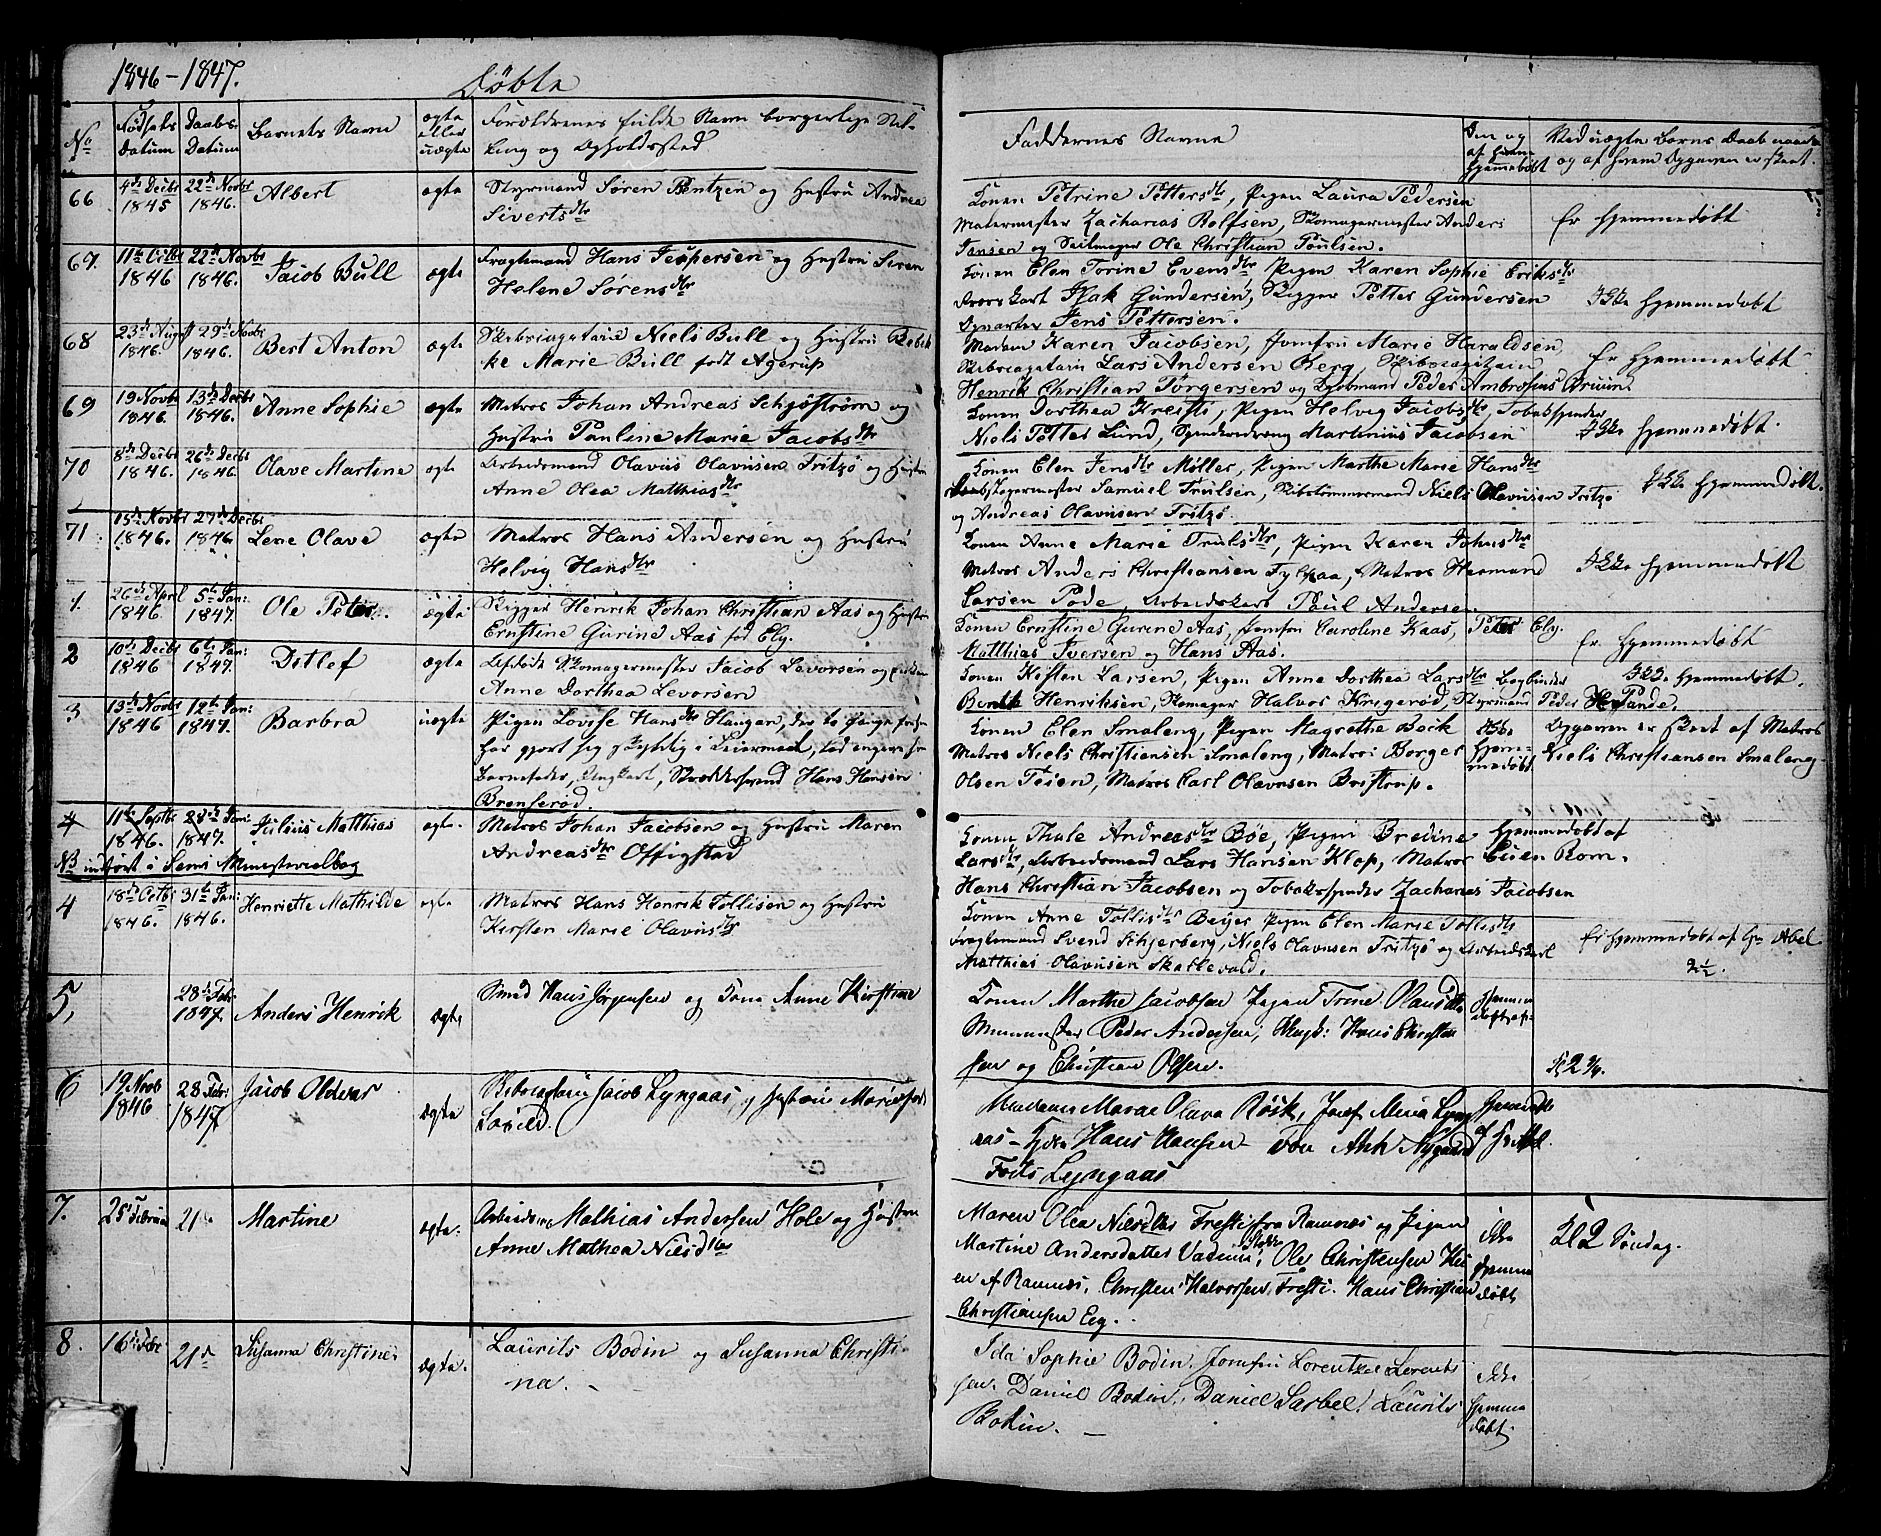 1846-1847. Döbte
No Födsels Datum Daabs Datum Barnets Navn ægte eller uægte Forældrenes fulde Navn borgerlige Stilling og Opholdssted Faddernes Navne Hjemmedöbt Ved uægte Børns Daab
66 4de Decbr 1845 22de Novbr 1846. Albert ægte Styrmand Sören Bentzen og Hustru Andrea
Sivertsdtr
Konen Petrine Pettersdtr, Pigen Laura Pedersen
Malermester Zacharias Rolfsen, Skomagermester Anders
Jansen og Seilmager Ole Christian Poulsen.
Er hjemmedöbt
67. 11te Octbr 1846 22de Novbr 1846. Jacob Bull ægte Fragtemand Hans Jespersen og Hustru Siren
Helene Sörensdtr
Konen Elen Torine Evensdtr, Pigen Karen Sophie Eriksdtr
Isak Gundersen, Skipper Petter Gundersen
Jens Pettersen.
Ikke hjemmedöbt
68 23de Augst 1846. 29de Novbr 1846. Bert Anton ægte Skibsrigatair Niels Bull og Hustru Rebek
ke Marie Bull född Agerup
Madam Karen Jacobsen, Jomfru Marie Haraldsen
Lars Andersen Berg,
Henrik Christian Törgersen og Peder Ambrosius Bruun.
Er hjemmedöbt
69 19 Novbr 1846. 13de Decbr 1846. Anne Sophie ægte Matros Johan Andreas Schjöström og
Hustru Pauline Marie Jacobsdtr
Konen Dorthea Kresti, Pigen Helvig Jacobsdtr, Tobaksspinder
Niels Petter Lund, Spinderdreng Martinius Jacobsen
Ikke hjemmedöbt.
70 8de Decbr 1846. 26de Decbr 1846. Olave Martine ægte Arbeidsmand Olavus Olavusen Fritzö og Hustru
Anne Olea Matthiasdtr
Konen Elen Jensdtr Möller, Pigen Marthe Marie Hansdtr
Samuel Trulsen, Skibstömmermand Niels Olavusen Fritzö
og Andreas Olavusen Fritzö.
Ikke hjemmedöbt.
71 15de Novbr 1846. 27de Decbr 1846. Lene Olave ægte Matros Hans Andersen og Hustru
Helvig Hansdtr
Konen Anne Marie Trulsdtr, Pigen Karen Johnsdtr
Matros Anders Christiansen, Matros Hermand
Larsen Pode, Arbeidskarl Paul Andersen.
Ikke hjemmedöbt
1. 26de April 1846 5te Jan: 1847. Ole Peter ægte Skipper Henrik Johan Christian Aas og Hustru
Ernstine Gurine Aas föd Ely.
Konen Ernstine Gurine Aas, Jomfru Caroline Kaas, Peter Ely.
Matthias Iversen og Hans Aas.
Er hjemmedöbt
2 10de Decbr 1846 6te Jan: 1847. Ditlef ægte Afdöde Skomagermester Jacob Levorsen og Enken
Anne Dorthea Levorsen
Konen Kisten Larsen, Pigen Anne Dorthea Larsdtr Bogbinder
Henriksen, Skomager Halvor Krigeröd, Styrmand Peder Pande.
Ikke hjemmedöbt.
3 13de Novbr 1846 12te Jan: 1847. Barbra uægte Pigen Lovise Hansdtr Haugan, der to Gange förhen
har gjort sig skyldig i Leiermaal,
Barnefader, Ungkarl, Skræddersvend Hans Hansen
Brenseröd.
Konen Elen Smaleng, Pigen Magrethe Beck
Matros Niels Christiensen Smaleng, Matros Borger
Olsen Teien, Matros Carl Olavusen Bristrup.
Ikke hjemmedöbt Opgaven er skeet af Matros
Niels Christiansen Smaleng
4 11te Septbr 1846. 28de Jan: 1847. Julius Matthias ægte. Matros Johan Jacobsen og Hustru Maren
Andreasdtr Offigstad
NB indfört i Sems Ministerialbog
Konen Thale Andreasdtr Böe, Pigen Bredine
Larsdtr, Arbeidsmand Lars Hansen Klop, Matros
Hans Christian Jacobsen og Tobaksspinder Zacharias Jacobsen
Hjemmedöbt af
Rom.
4 18de Octbr 1846. 31te Jan: 1846. Henriette Mathilde ægte Matros Hans Henrik Tollisen og Hustru
Kirsten Marie Olavusdtr
Konen Anne Tollisdtr Beijer Pigen Elen Marie Tollisdtr
Fragtemand Svend Schjerberg, Niels Olavusen Fritzö og Arbeidskarl
Matthias Olavusen Skallevald.
Er hjemmedöbt af Hr Abel
2 1/2.
5, 28de Febr 1847. Anders Henrik ægte Smed Hans Jörgensen og Kone Anne Kirstine
Konen Marthe Jacobsen Pigen Trine Olausdtr
Muurmester Peder Andersen, Hans Christen
sen og Christian Olsen.
6 19 Novb 1846 28 Febr 1847 Jacob Oldens ægte Jacob Lyngaas, og Hustru Marie
Madame Maren Olava Röisk, Jomf Lyng
aas - Hans Hansen - Nygaard
Frits Lyngaas
7. 25 Februar 21 Martine ægte. Arbeidsm Mathias Andersen Hole og Hustru
Anne Mathea Nilsdtr
Maren Olea Nilsdtr Fresti fra Ramnæs og Pigen
Martine Andersdatter, Ole Christensen
en af Ramnæs, Christen Halvorsen Fresti. Hans Christian
Christiansen Eeg.
ikke hjemmedöbt Kl 2 Söndag.
8. 16 Febr 21 Susanna Christine ægte. Laurits Bodin og Susanna Christi-
na.
Ida Sophie Bodin, Jomfru Lorentze Lorent
sen. Daniel Bodin, Daniel Sarbel, Laurits
Bodin.
ikke hjemmedöbt